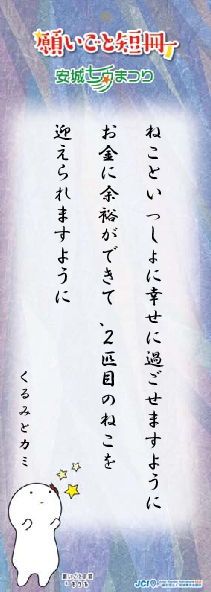 願いごと短冊
安城七夕まつり
ねこといっしょに幸せに過ごせますように
お金に余裕ができて、2匹目のねこを
迎えられますように
くるみとカミ
JCI